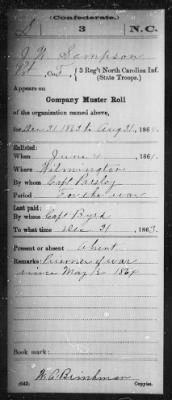 (Confederate.)
S 3 N.C.
J. W. Sampson
Pvt, Co. { 3 Reg't North Carolina Inf.
(State Troops.)
Appears on
Company Muster Roll
of the organization named above,
for Dec 31 1863 to Aug 31, 1864.
Enlisted:
When June 186
Where Wilmington
By whom Capt Parsley
Period For the war
Last paid:
By whom Capt Byrd
To what time Dec 31, 1863.
Present or absent Absent
Remarks: Prisoner of war
since May 12 1864
Book mark:
(642) W. C. Brinkman
Copyist.